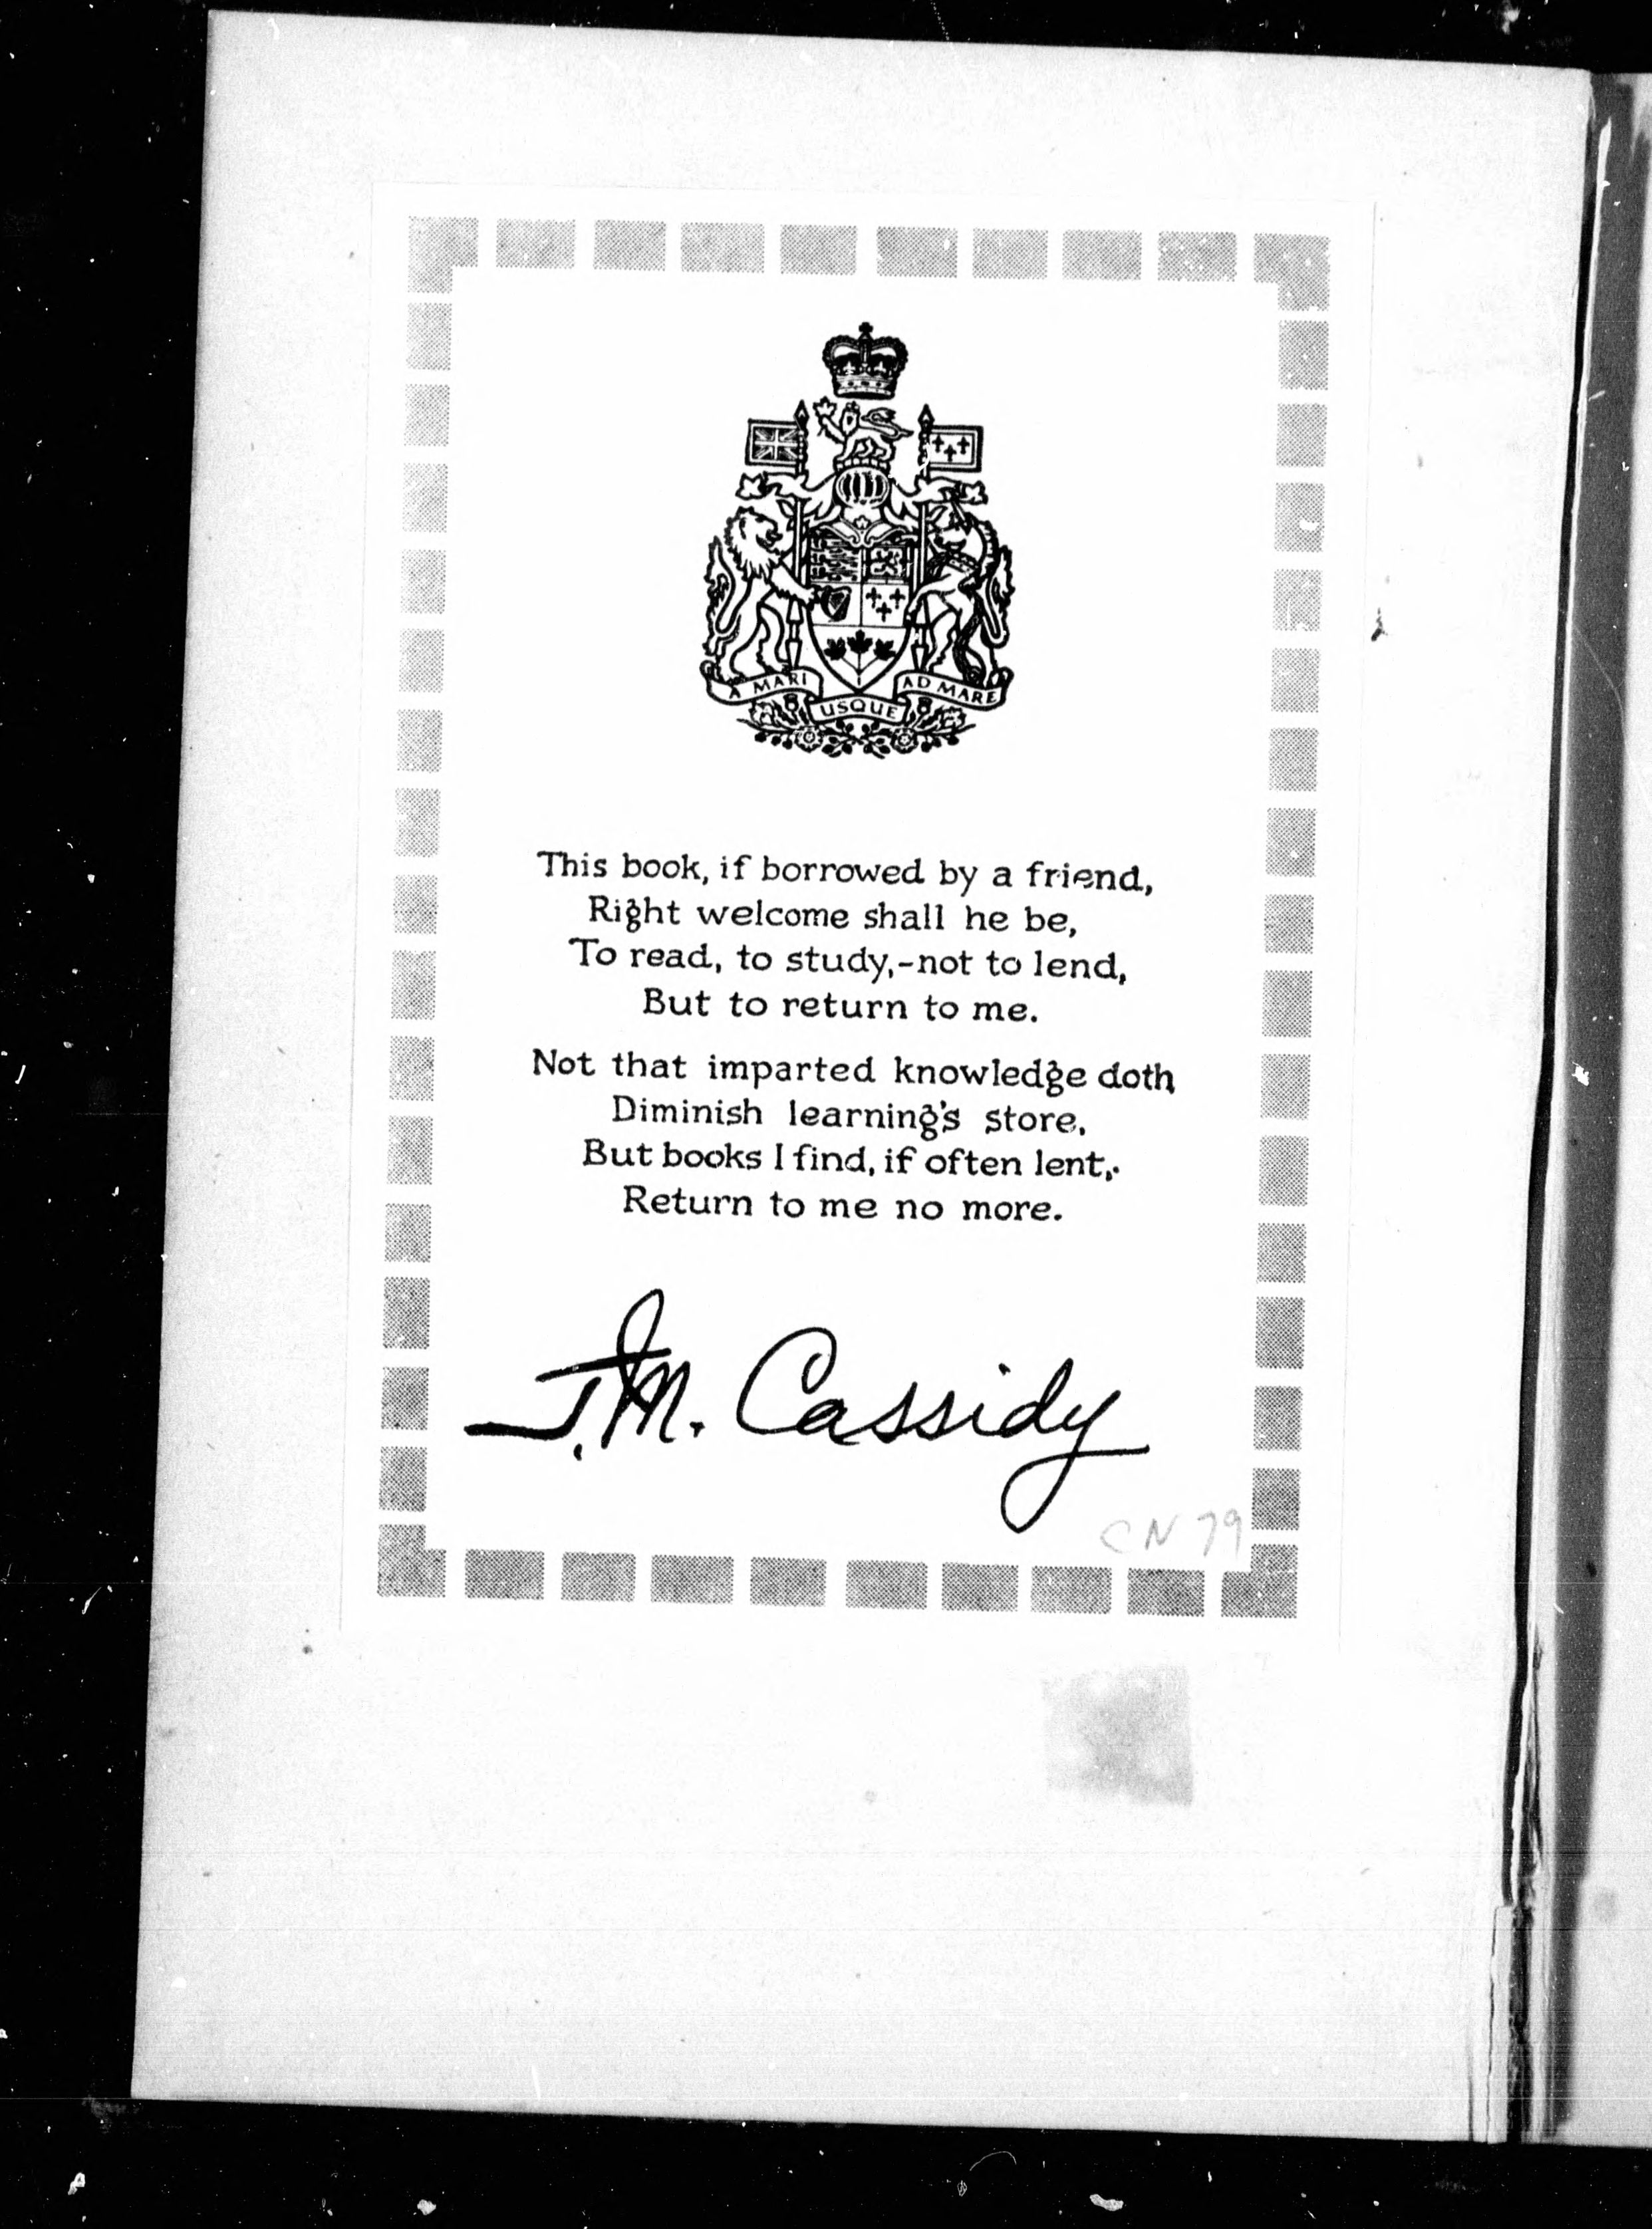 A MARI USQUE AD MARE
This book, if borrowed by a friend,
Right welcome shall he be,
To read, to study,-not to lend,
But to return to me.
Not that imparted knowledge doth
Diminish learning's store,
But books I find, if often lent,
Return to me no more.
J.M. Cassidy
CN 79